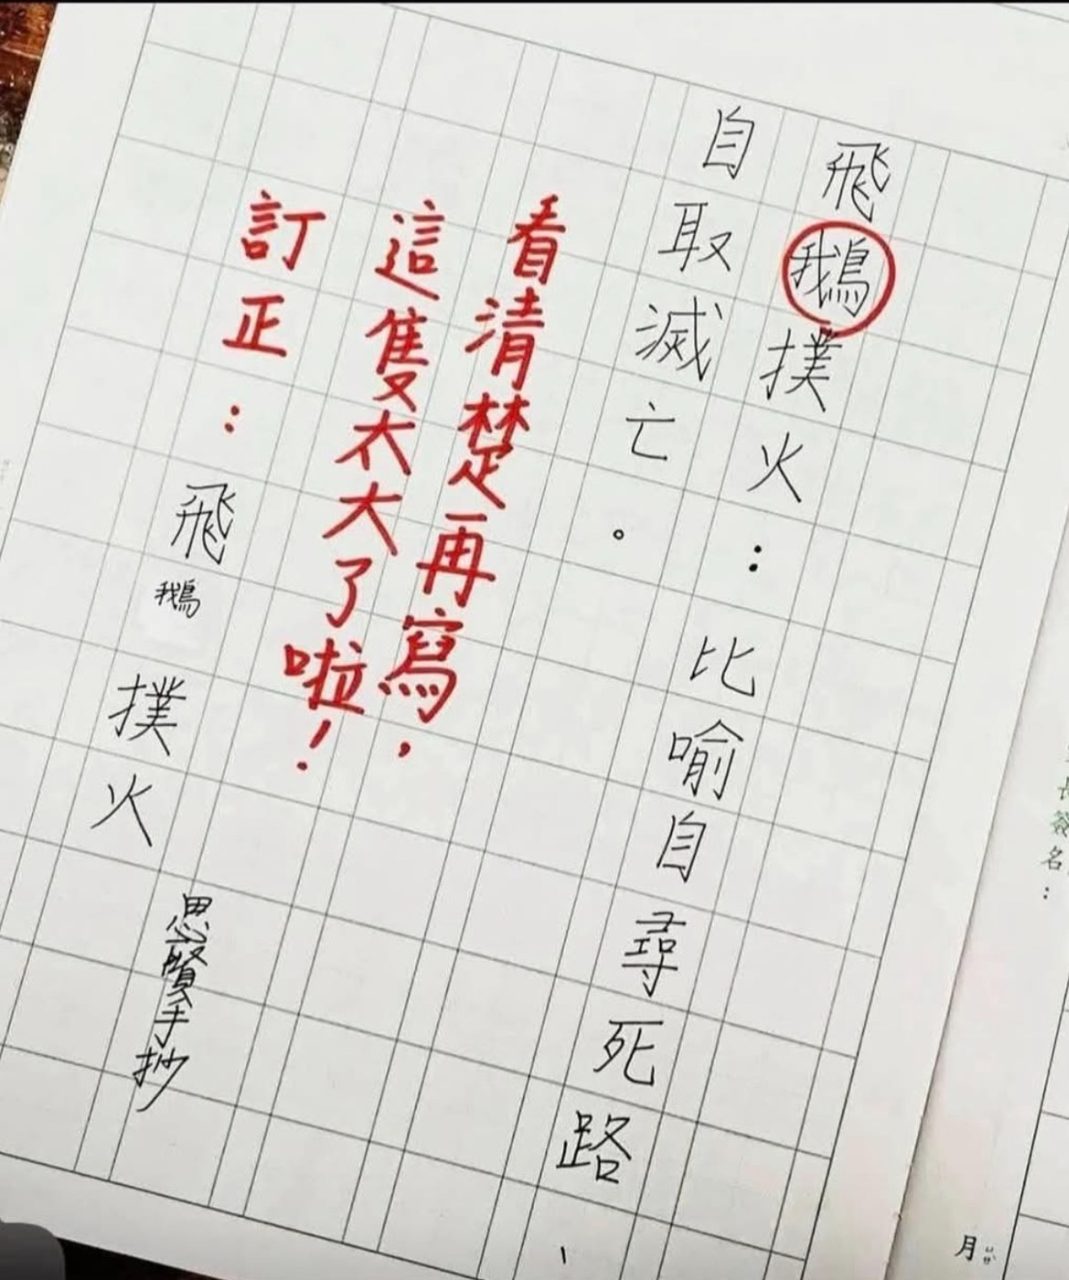 飛鵝撲火：比喻自尋死路、
自取滅亡。
看清楚再寫，
這隻太大了啦！
訂正：
飛鵝撲火
思賢手抄
長簽名：
月